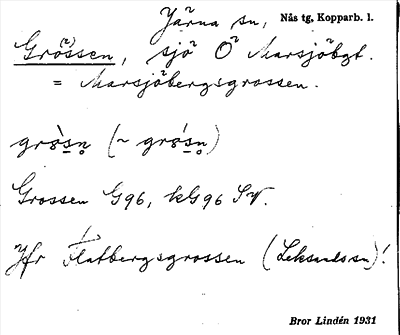 Järna sn, Nås tg, Kopparb. l.
Grossen, sjö Ö Marsjöbgt.
= Marsjöbergsgrossen.
Grossen G96, kG96 SV.
Jfr Flatbergsgrossen (Leksands sn)!
Bror Lindén 1931